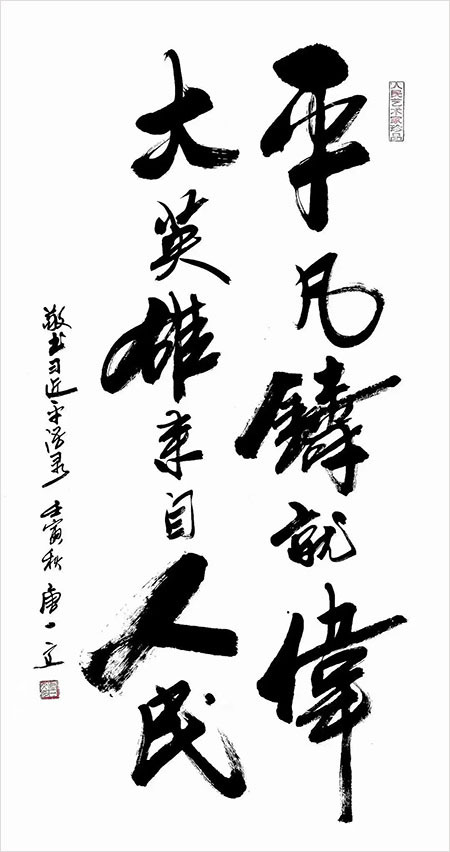 平凡鑄就偉
大英雄来自人民
敬书习近平语录 壬寅秋 唐一立
人民艺术家珍品